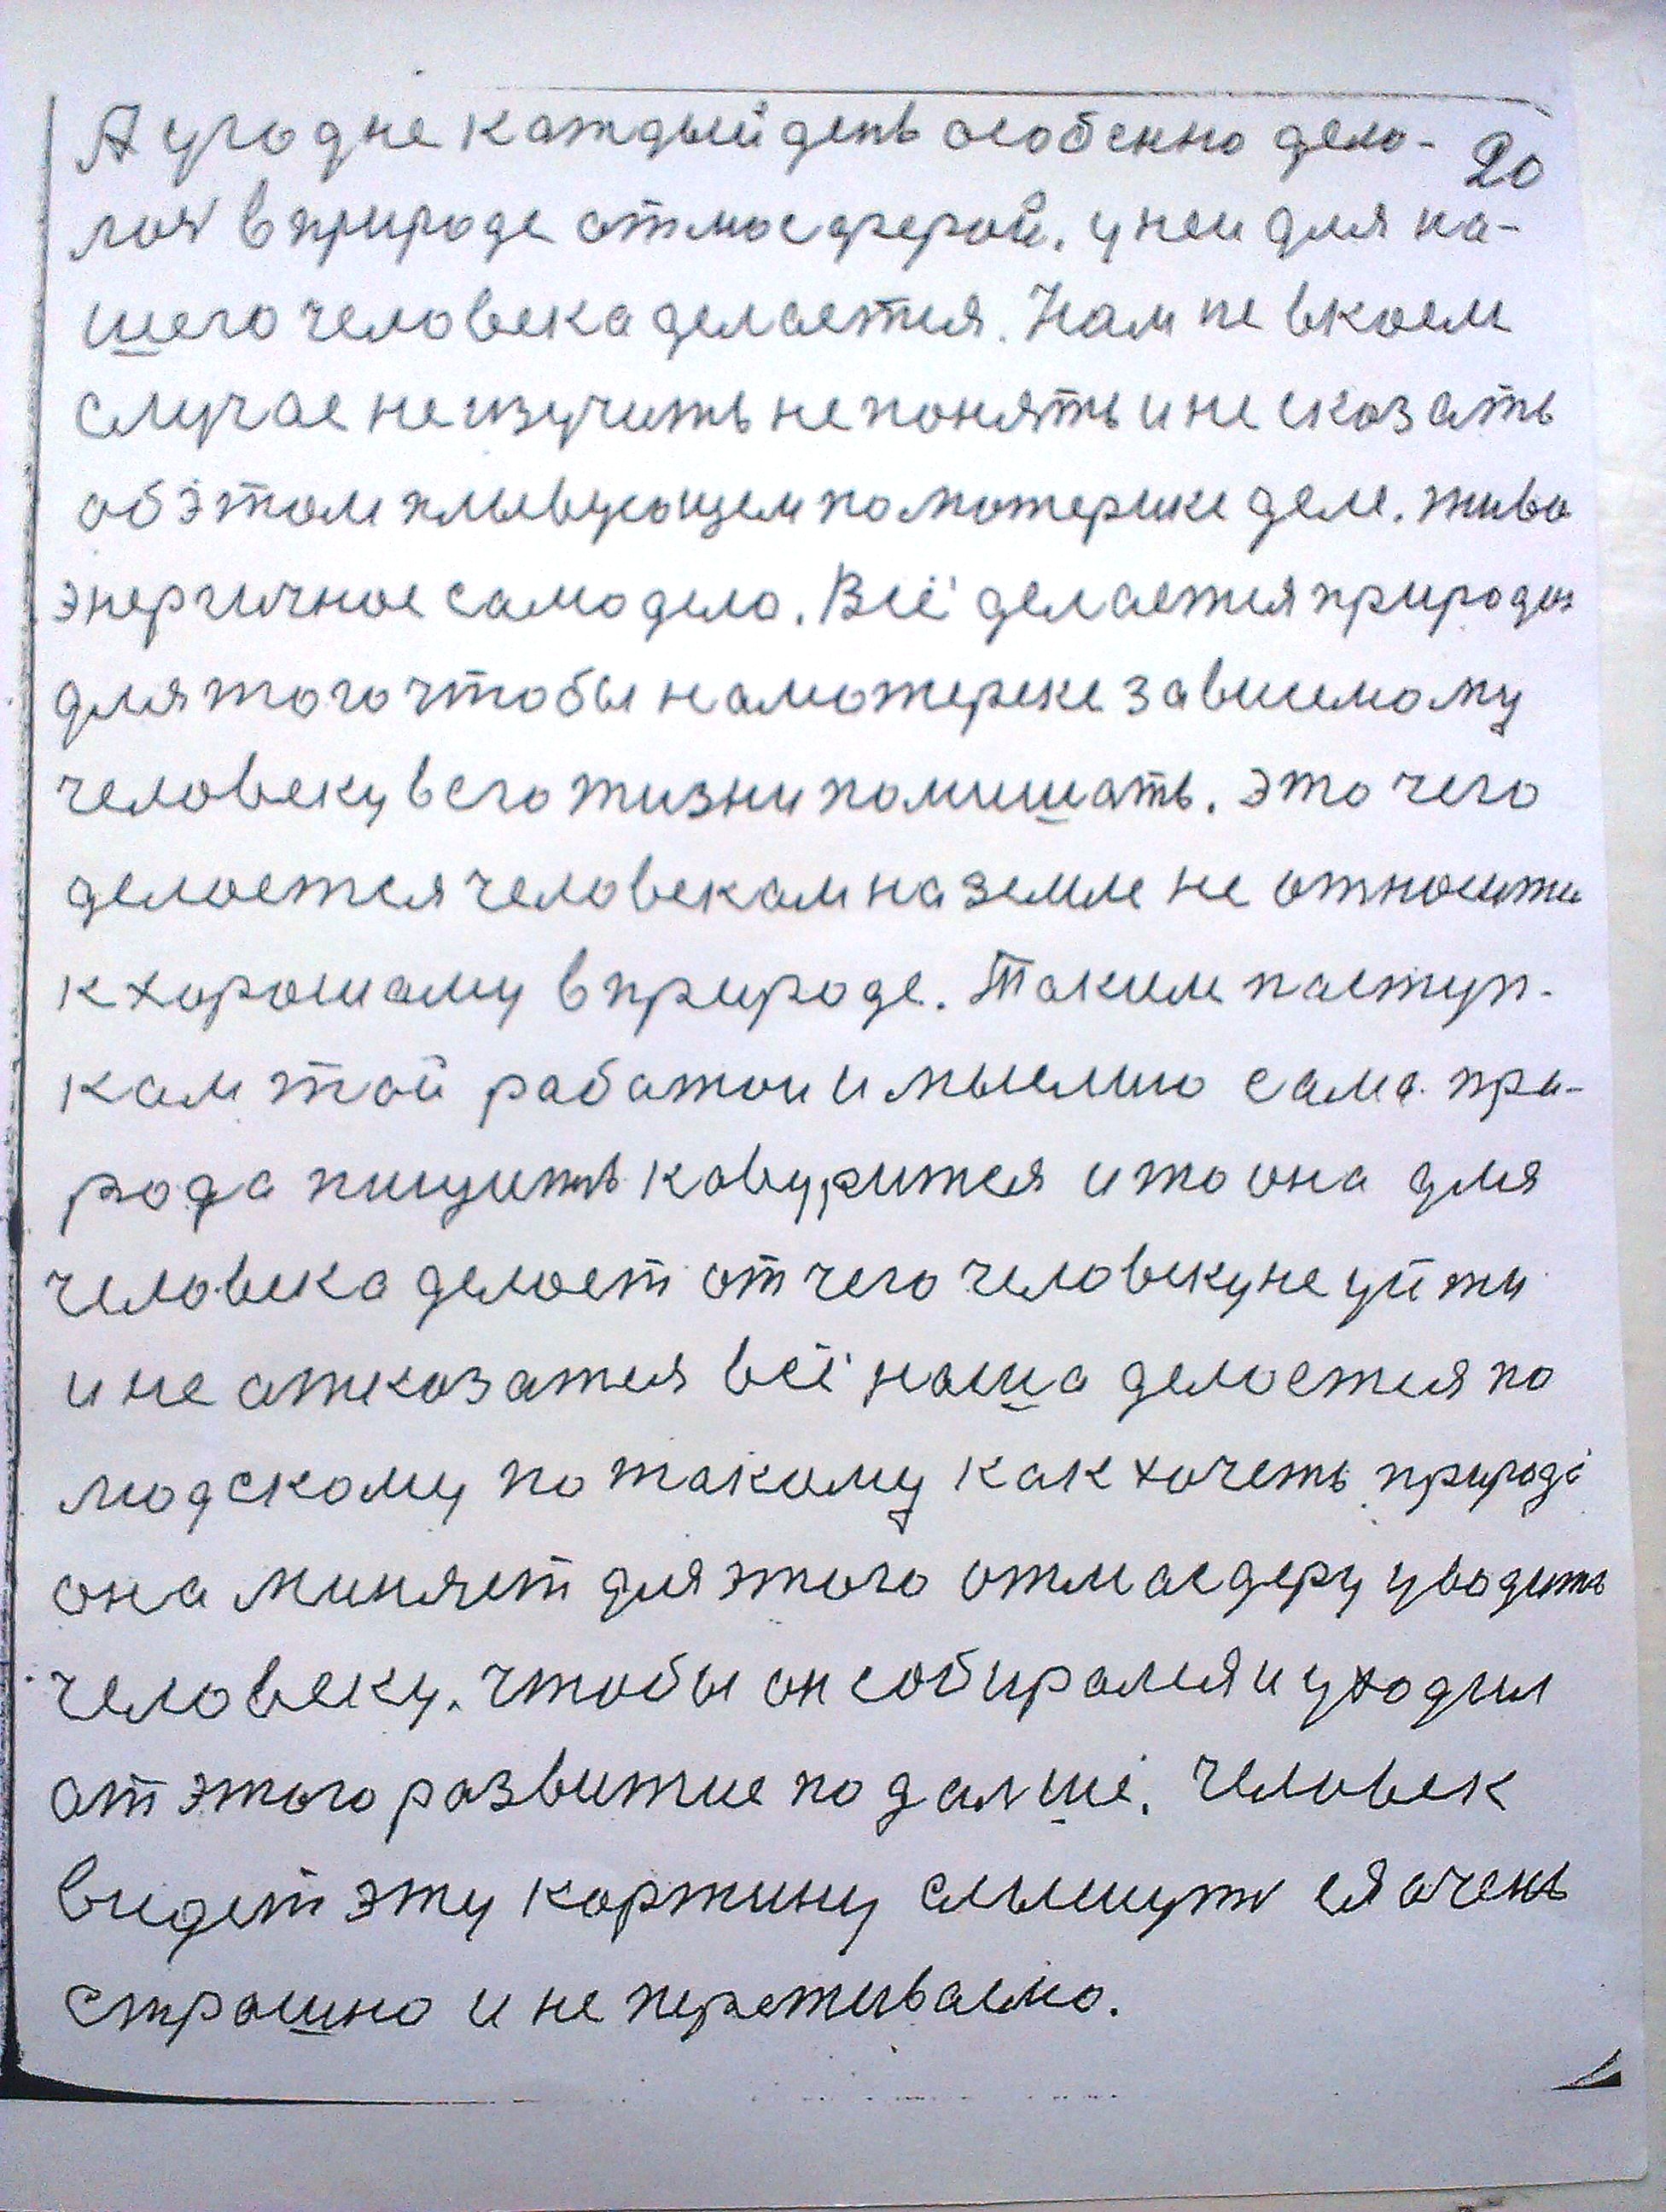 А угодне каждый день особенно дело-
20
лоя в природе отмосферой. у неи для на-
шего человека делается. Нам не вкоем
случае не изучить не понять и не сказать
об этом плывусощем по мотерике деле. живо
энергичное само дело. Всё делается природои
для того чтобы на мотереке зависемому
человеку в его жизни помишать. это чего
делоется человекам на земле не относити
к хорошаму в природе. Таким паступ-
кам той работои и мыслию сама при-
рода пищить кавурится и то она для
человека делоет от чего человеку не уйти
и не атказатся всё наша делоется по
людскому по такому как хочеть природа
она миняет для этого отмасдеру уводить
человеку. чтобы он собирался и уходил
от этого развитие по далше. человек
видет эту картину слышуть ея очень
страшно и не переживаемо.